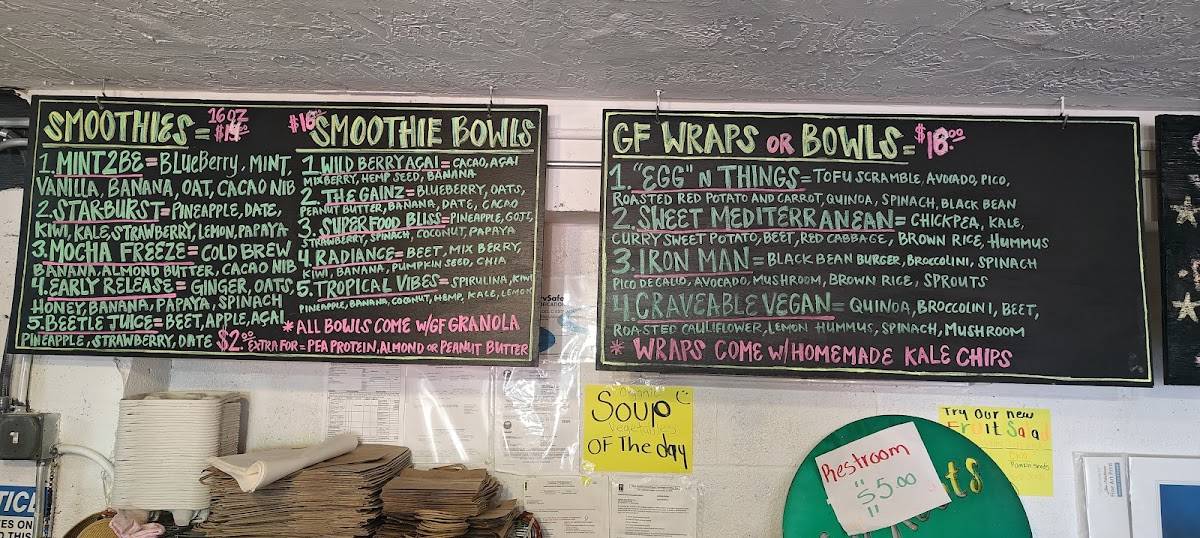 SMOOTHIES =
16 OZ
$14
1. MINT2BE = BLUEBERRY, MINT,
VANILLA, BANANA, OAT, CACAO NIB
2. STARBURST = PINEAPPLE, DATE,
KIWI, KALE, STRAWBERRY, LEMON, PAPAYA
3. MOCHA FREEZE = COLD BREW
BANANA, ALMOND BUTTER, CACAO NIB
4. EARLY RELEASE = GINGER, OATS,
HONEY, BANANA, PAPAYA, SPINACH
5. BEETLE JUICE = BEET, APPLE, AÇAI
PINEAPPLE, STRAWBERRY, DATE
$16.00 SMOOTHIE BOWLS
1. WILD BERRY AÇAI = CACAO, AÇAI
MIXBERRY, HEMP SEED, BANANA
2. THE GAINZ = BLUEBERRY, OATS,
PEANUT BUTTER, BANANA, DATE, CACAO
3. SUPERFOOD BLISS = PINEAPPLE, GOJI,
STRAWBERRY, SPINACH, COCONUT, PAPAYA
4. RADIANCE = BEET, MIX BERRY,
KIWI, BANANA, PUMPKIN SEED, CHIA
5. TROPICAL VIBES = SPIRULINA, KIWI
PINEAPPLE, BANANA, COCONUT, HEMP, KALE, LEMON
* ALL BOWLS COME W/GF GRANOLA
$2.00 EXTRA FOR = PEA PROTEIN, ALMOND OR PEANUT BUTTER
GF WRAPS OR BOWLS = $18.00
1. "EGG" N THINGS = TOFU SCRAMBLE, AVOCADO, PICO,
ROASTED RED POTATO AND CARROT, QUINOA, SPINACH, BLACK BEAN
2. SWEET MEDITERRANEAN = CHICKPEA, KALE,
CURRY SWEET POTATO, BEET, RED CABBAGE, BROWN RICE, HUMMUS
3. IRON MAN = BLACK BEAN BURGER, BROCCOLINI, SPINACH
PICO DE GALLO, AVOCADO, MUSHROOM, BROWN RICE, SPROUTS
4. CRAVEABLE VEGAN = QUINOA, BROCCOLINI, BEET,
ROASTED CAULIFLOWER, LEMON HUMMUS, SPINACH, MUSHROOM
* WRAPS COME W/HOMEMADE KALE CHIPS
Organic
Soup
Vegetables
OF The day
Try Our new
Fruit Salad
Pumpkin seeds
Restroom
"$5.00"